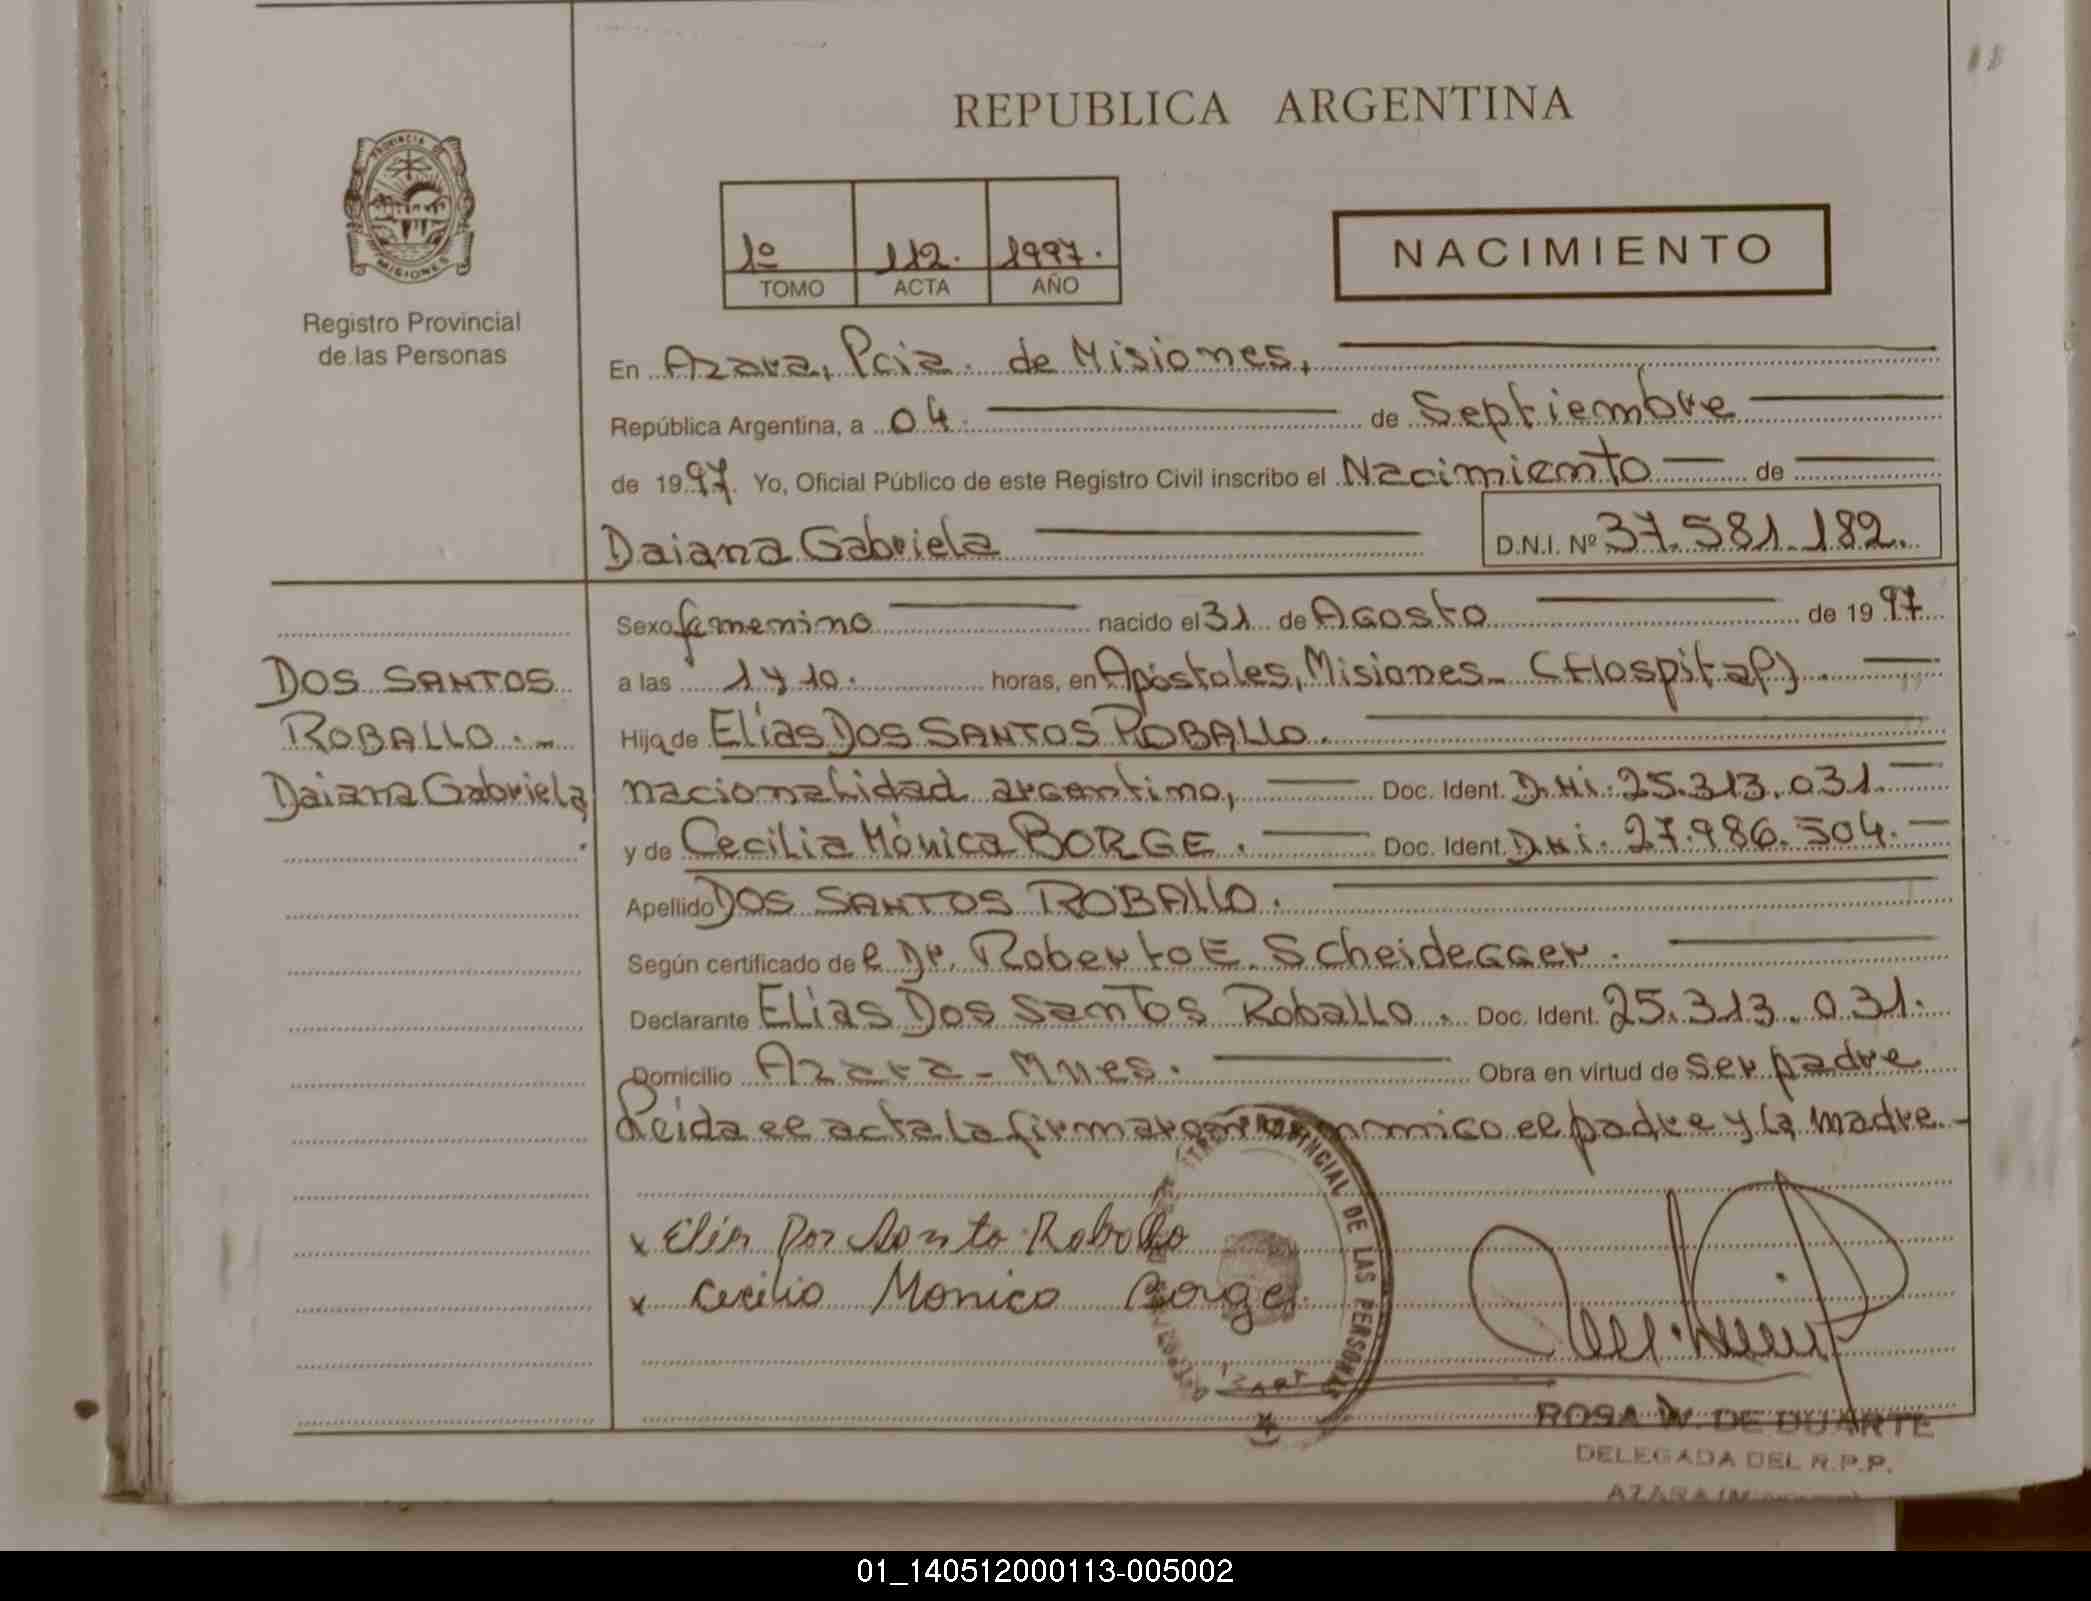 REPUBLICA ARGENTINA
PROVINCIA DE
MISIONES
Registro Provincial
de las Personas
1º 112. 1997.
TOMO ACTA AÑO
NACIMIENTO
En Azara, Pcia. de Misiones,
República Argentina, a 04. de Septiembre
de 1997. Yo, Oficial Público de este Registro Civil inscribo el Nacimiento de
Daiana Gabriela D.N.I. Nº 37.581.182.
Sexo femenino nacido el 31 de Agosto de 1997
DOS SANTOS
ROBALLO.-
Daiana Gabriela
a las 1 y 10. horas, en Apóstoles, Misiones- (Hospital).
Hija de Elías DOS SANTOS ROBALLO.
nacionalidad argentino, Doc. Ident. D.N.i. 25.313.031.
y de Cecilia Mónica BORGE. Doc. Ident. D.N.i. 27.986.504.
Apellido DOS SANTOS ROBALLO.
Según certificado del Dr. Roberto E. Scheidegger.
Declarante Elias Dos Santos Roballo. Doc. Ident. 25.313.031.
Domicilio Azara - Mnes. Obra en virtud de ser padre
Leída el acta la firmaron conmico el padre y la madre.-
x Elias Dos Santo Roballo
x Cecilia Monica Borge
PROVINCIAL DE LAS PERSONAS
ROSA W. DE DUARTE
DELEGADA DEL R.P.P.
01_140512000113-005002